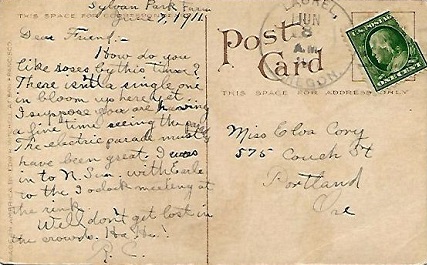 Sylvan Park Farm
June 7, 1911.
THIS SPACE FOR
Dear Friend,-
How do you
like roses by this time?
There isn't a single one
in bloom up here yet.
I suppose you are having
a fine time seeing the
The electric parade must
have been great. I was
in to N. with Earle
to the 3 o'clock meeting at
the rink.
Well don't get lost in
the crowds. Ha. Ha.
R. C.
Post
Card
THIS SPACE FOR ADDRESS ONLY
LAUREL,
JUN
8
A.M.
ONE CENT
Miss Cory
575 Couch St
Portland
Ore